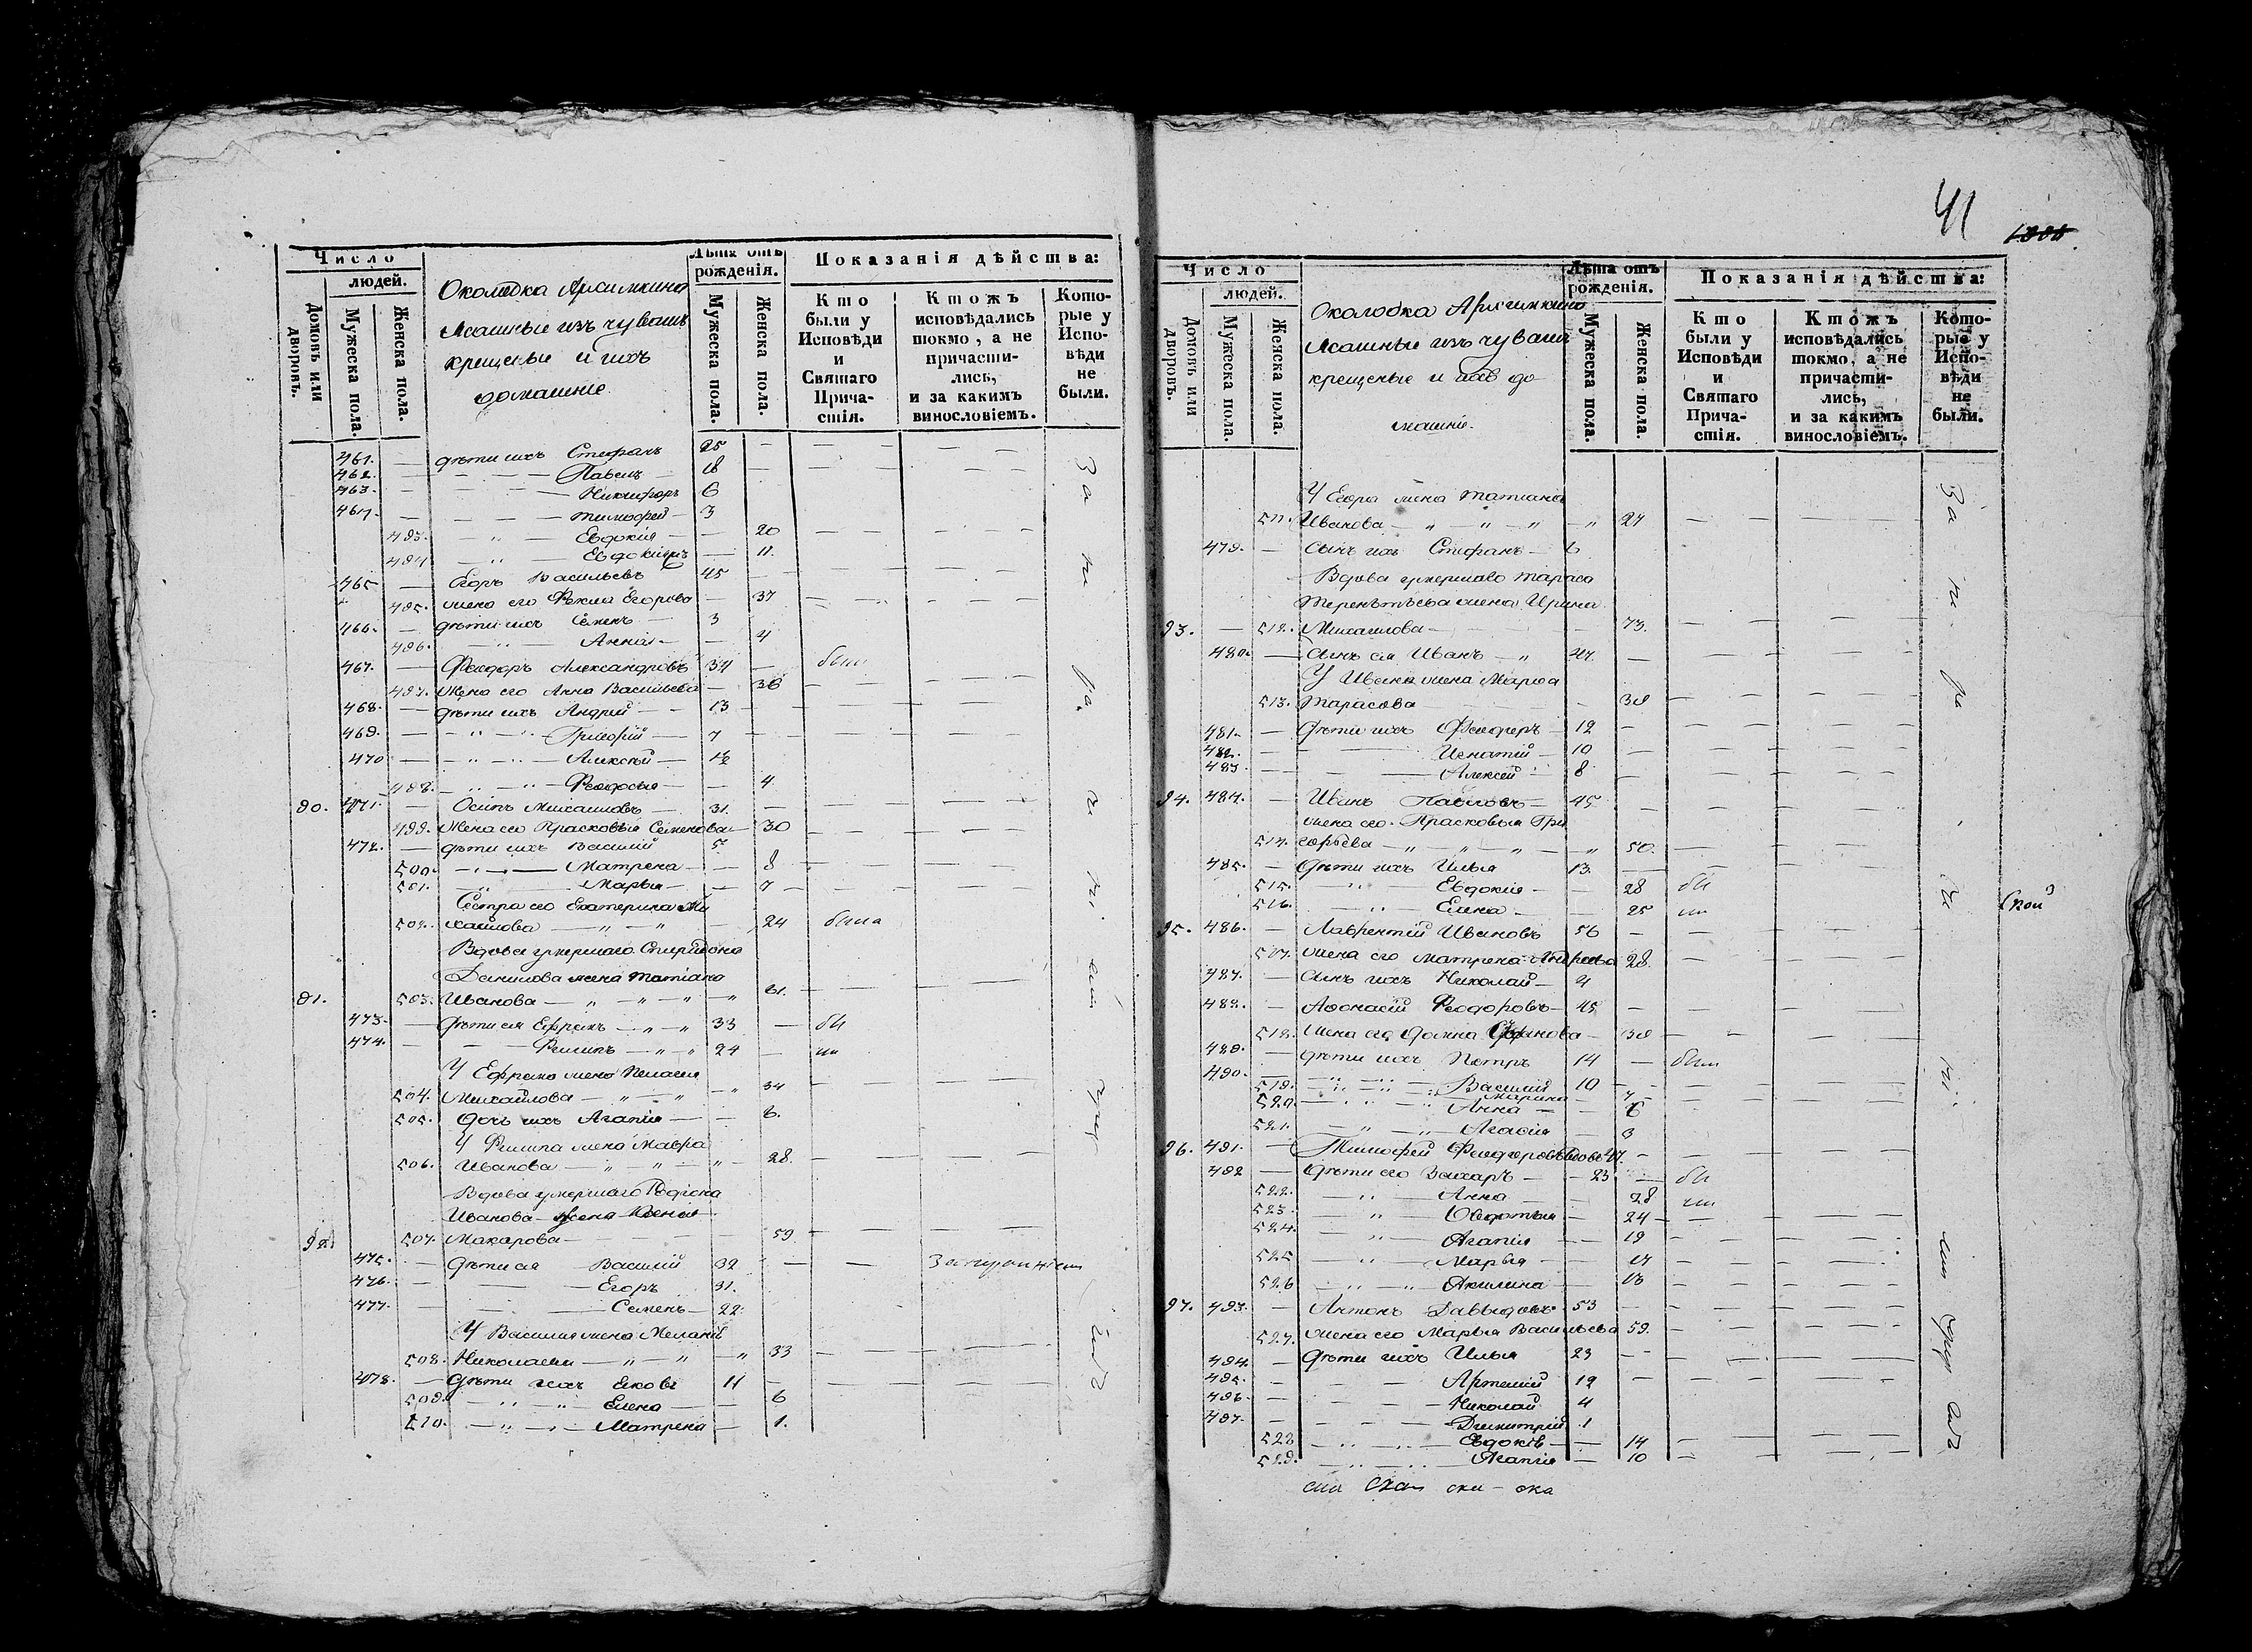 41
Число
людей.
Домовъ или дворовъ.
Мужеска пола.
Женска пола.
Околодка
Ясашные изъ чувашъ
крещеные и ихъ
домашніе.
Лѣта отъ рожденія.
Мужеска пола.
Женска пола.
Показанія дѣйства:
Кто были у Исповѣди и Святаго Причастія.
Ктожъ исповѣдались токмо, а не причастились, и за какимъ винословіемъ.
Которые у Исповѣди не были.
461. дѣти ихъ Стефанъ 25
462. Павелъ 18
463. Никифоръ 6
464. Тимофей 3
493. Евдокія 20
494 11.
465 Егоръ Васильевъ 45
495. жена его Егорова 37
466. дѣти ихъ Семенъ 3
496. Анна 4
467. Феодоръ Александровъ 34 былъ
497. жена его Анна Васильева 36
468. дѣти ихъ Андрей 13
469. Григорій 7
470 Алексѣй
498. Феодосья 4.
90. 471. Осипъ Михайловъ 31.
499. Жена его Прасковья Семенова 30
472. дѣти ихъ Василій 5
500. Матрена 8
501. Марья 7
Сестра его Екатерина Ми
502. хайлова 24 была
Вдова умершаго Спиридона
Данилова жена Татіана
91. 503. Иванова 61.
473. дѣти ея Ефремъ 33 бы
474. Филипъ 24 ли
У Ефрема жена Пелагея
504. Михайлова 34
505. Дочь ихъ Агапія 6.
У Филипа жена Мавра
506. Иванова 28.
Вдова умершаго Родіона
Иванова жена Ксенія
92. 507. Макарова 59
475. дѣти ея Василій 32
476. Егоръ 31.
477. Семенъ 22.
У Василія жена Меланія
508. Николаева 33
478. дѣти ихъ Яковъ 11
509. Елена 6
510. Матрена 1.
Число
людей.
Домовъ или дворовъ.
Мужеска пола.
Женска пола.
Околодка
Ясашные изъ чувашъ
крещеные и ихъ до
машніе.
Лѣта отъ рожденія.
Мужеска пола.
Женска пола.
Показанія дѣйства:
Кто были у Исповѣди и Святаго Причастія.
Ктожъ исповѣдались токмо, а не причастились, и за какимъ винословіемъ.
Которые у Исповѣди не были.
У Егора жена Татіана
511. Иванова 24
479. сынъ ихъ Стефанъ 6
Вдова умершаго Тараса
Терентьева жена Ирина
93. 512. Михайлова 73.
480. сынъ ея Иванъ
У Ивана жена Марфа
513. Тарасова 38
481. дѣти ихъ Феодоръ 12
482. Игнатій 10
483. Алексей 8
94. 484. Иванъ Павловъ 45
жена его Прасковья Гри
514. горьева 50.
485. дѣти ихъ Илья 13.
515. Евдокія 28 бы
516. Елена 25 ли
95. 486. Лаврентій Ивановъ 56
517. жена его Матрена Андреева 28.
487. сынъ ихъ Николай 4
488. Афонасій Феодоровъ 45
518. жена его Домна 38
489. дѣти ихъ Петръ 14 былъ
490. Василій 10
519. Марина
520. Анна 6
521. Агафія 3
96. 491. Тимофей Феодоровъ вдовъ
492 дѣти его Захаръ 23. бы
522. Анна 28 ли
523. Федотья 24
524. Агапія 19
525 Марья
526 Акилина 13
97. 493. Антонъ Давыдовъ 53
527. жена его Марья Васильева 59.
494. дѣти ихъ Илья 23
495. Артемій 12
496. Николай 4
497. Димитрій 1
528 Евдокія 14
529. Агапія 10
ской